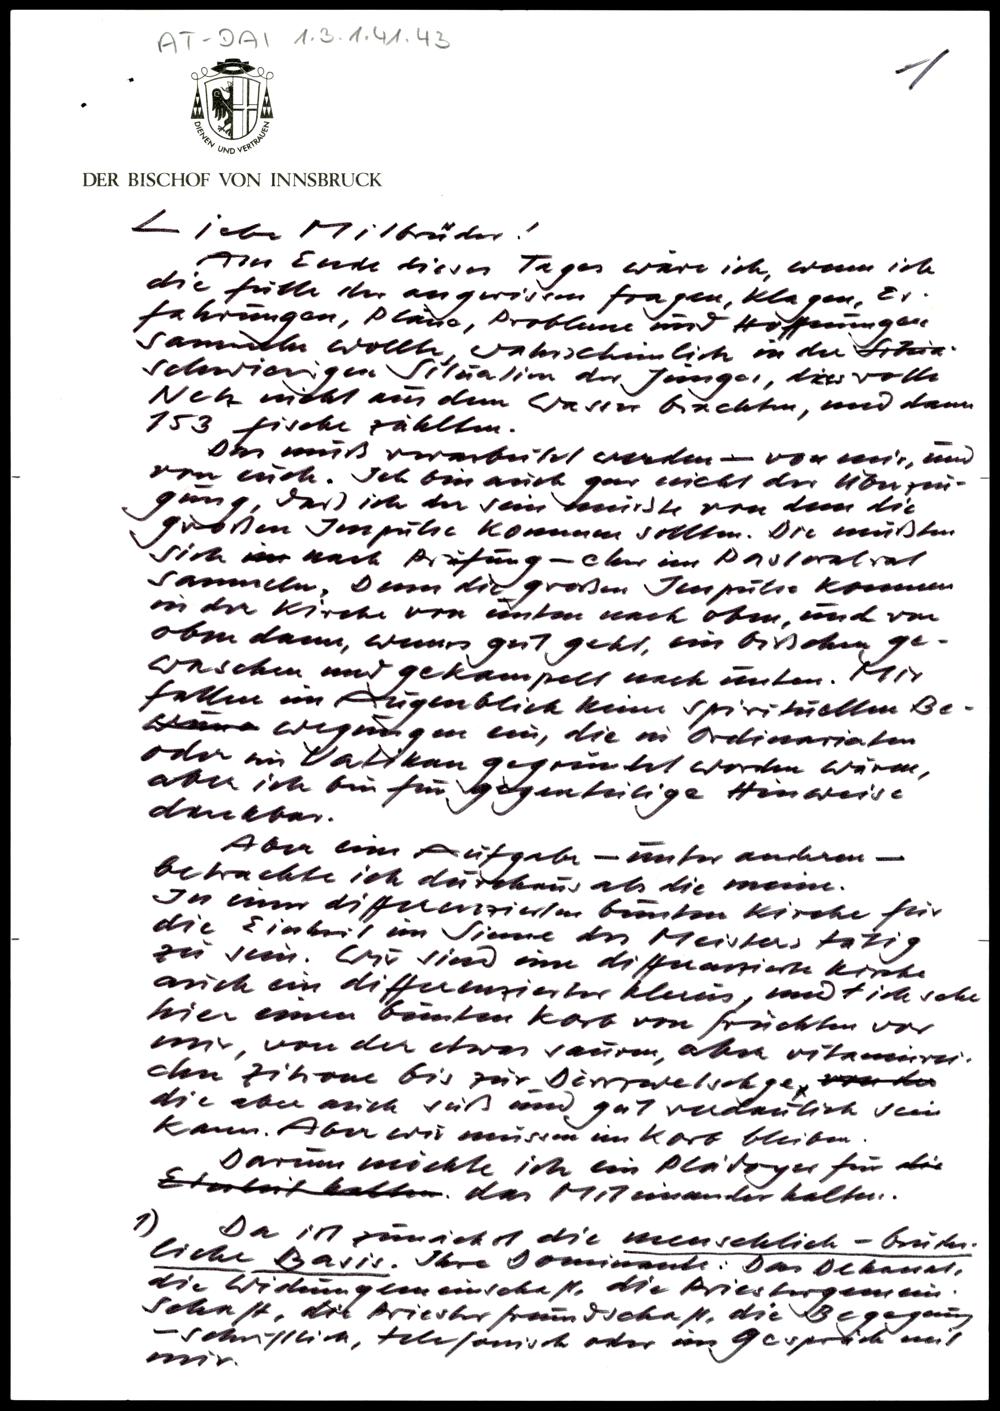 AT-DAI 1.3.1.41.43
1
DIENEN UND VERTRAUEN
DER BISCHOF VON INNSBRUCK
Liebe Mitbrüder!
Am Ende dieses Tages wäre ich, wenn ich
die Fülle der angerissenen Fragen, Klagen, Er-
fahrungen, Pläne, Probleme und Hoffnungen
sammeln wollte, wahrscheinlich in der Situa-
schwierigen Situation der Jünger, die volle
Netz nicht aus dem Wasser brachten, und dann
153 Fische zählten.
Das muß verarbeitet werden – von mir, und
von euch. Ich bin auch gar nicht der Überzeu-
gung, daß ich der sein müßte von dem die
großen Impulse kommen sollten. Die müßten
sich im nach Prüfung – eher im Pastoralrat
sammeln. Denn die großen Impulse kommen
in der Kirche von unten nach oben, und von
oben dann, wenns gut geht, ein bißchen ge-
waschen und gekampelt nach unten. Mir
fallen im Augenblick keine spirituellen Be-
wegungen ein, die in Ordinariaten
oder im Vatikan gegründet worden wären,
aber ich bin für gegenteilige Hinweise
dankbar.
Aber eine Aufgabe – unter anderen –
betrachte ich durchaus als die meine.
In einer differenzierten bunten Kirche für
die Einheit im Sinne des Meisters tätig
zu sein. Wir sind eine differenzierte Kirche
auch ein differenzierter Klerus, und ich sehe
hier einen bunten Korb von Früchten vor
mir, von der etwas sauren, aber vitaminrei-
chen Zitrone bis zur Dörrzwetschge, von der
die aber auch süß und gut verdaulich sein
kann. Aber wir müssen im Korb bleiben.
Darum möchte ich ein Plädoyer für die
Einheit halten. das Miteinander halten.
1) Da ist zunächst die menschlich-brüder-
liche Basis. Ihre Dominante: Das Dekanat,
die Widumgemeinschaft, die Priestergemein-
schaft, die Priesterfreundschaft, die Begegnung
– schriftlich, telefonisch oder im Gespräch mit
mir.